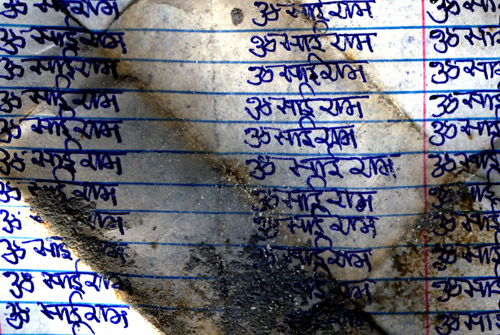 ॐ साईं राम ॐ साईं राम ॐ साईं
ॐ साईं राम ॐ साईं राम ॐ साईं
ॐ साईं राम ॐ साईं राम ॐ साईं
ॐ साईं राम ॐ साईं राम ॐ साईं
ॐ साईं राम ॐ साईं राम ॐ साईं
ॐ साईं राम ॐ साईं राम ॐ साईं
ॐ साईं राम ॐ साईं राम ॐ
ॐ साईं राम ॐ साईं राम ॐ साईं
ॐ साईं राम ॐ साईं राम ॐ साईं
ॐ साईं राम ॐ राम ॐ साईं
ॐ साईं राम ॐ